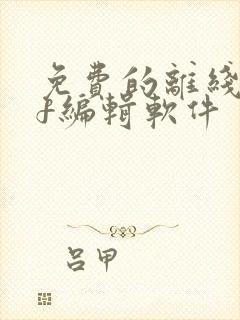 免費的離綫
f編輯軟件
呂甲